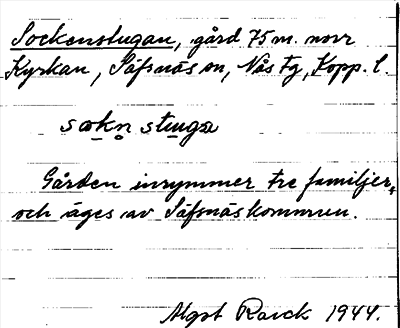 Sockenstugan, gård 75 m. norr
Kyrkan, Säfsnäs sn, Nås tg, Kopp. l.
sɷkn stuga
Gården inrymmer tre familjer,
och äges av Säfsnäskommun.
Algot Rarck 1944.